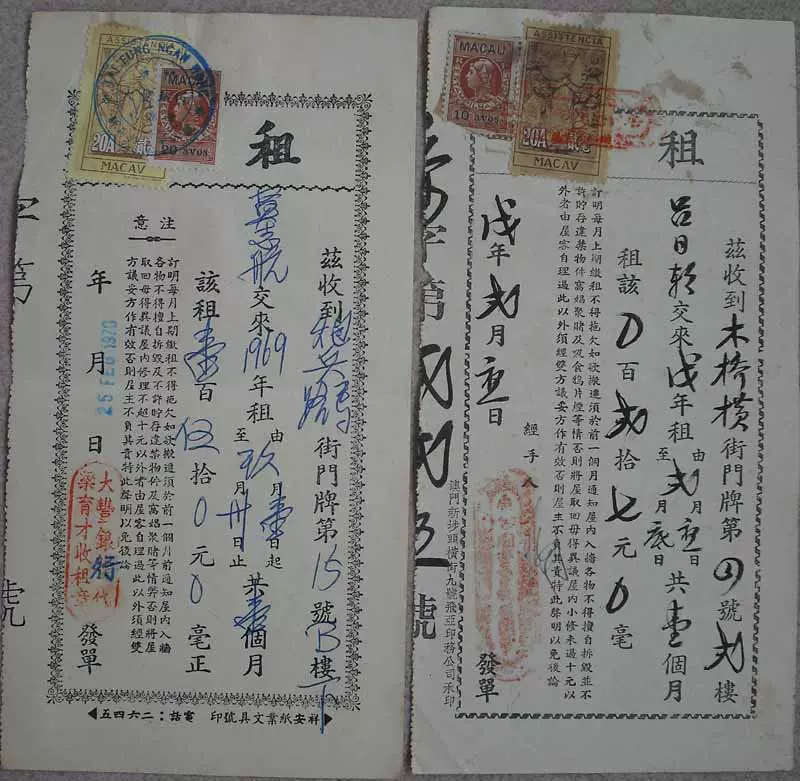 ASSISTENCIA
20A
MACAV
MACAU
20 avos
租
茲收到
街門牌第15號B樓下
交來1969年租由玖月壹日起至 月卅日止共壹個月
該租壹百伍拾0元0毫正
注意
訂明每月上期繳租不得拖欠如欲搬遷須於前一個月前通知屋內入牆
各物不得擅自拆毀及不許貯存違禁物份及窩娼聚賭等情弊否則將屋
取回毋得異議屋內修理不超十元以外者由屋客自理過此以外須經雙
方議妥方作有效否則屋主不負其責特此聲明以免後論
年 月 日
25 FEB 1970
發單
大豐銀行代
葉育才收租章
字第
號
祥安紙業文具號印 電話:二六四五
MACAU
10 avos
ASSISTENCIA
20A
MACAV
租
茲收到木橋橫街門牌第四號弍樓
呂日 交來戊年租由弍月壹日至 月底日共壹個月
租該0百弍拾七元0毫
訂明每月上期繳租不得拖欠如欲搬遷須於前一個月通知屋內入牆各物不得擅自拆毀並不
許貯存違禁物件窩娼聚賭及吸食鴉片煙等情否則將屋取回毋得異議屋內小修未過十元以
外者由屋客自理過此以外須經雙方議妥方作有效否則屋主不負其責特此聲明以免後論
戊年弍月壹日
經手人
發單
字第
號
澳門新埗頭橫街九號飛亞印務公司承印